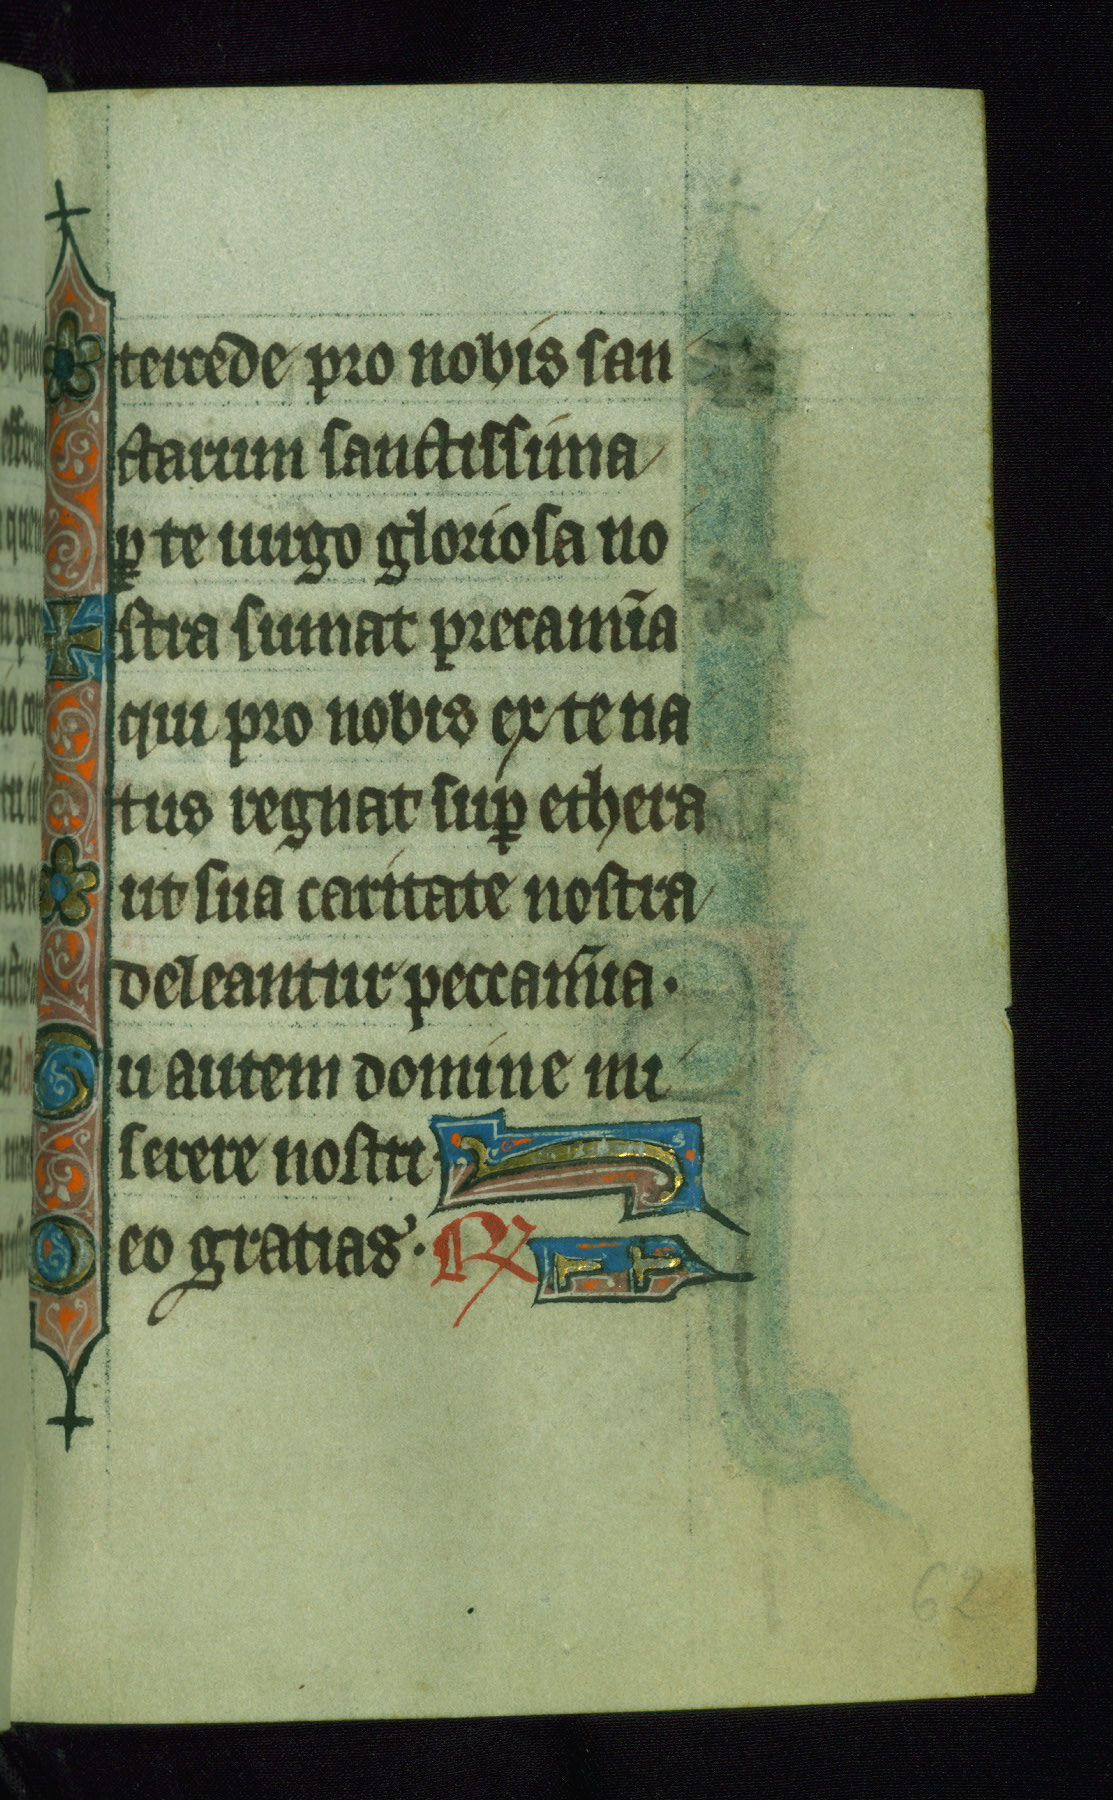 tercede pro nobis san
ctarum sanctissima
ꝑ te uirgo gloriosa no
stra sumat precamīa
qui pro nobis ex te na
tus regnat suꝑ ethera
ut sua caritate nostra
deleantur peccamīa.
Tu autem domine mi
serere nostri
Deo gratias. R
62